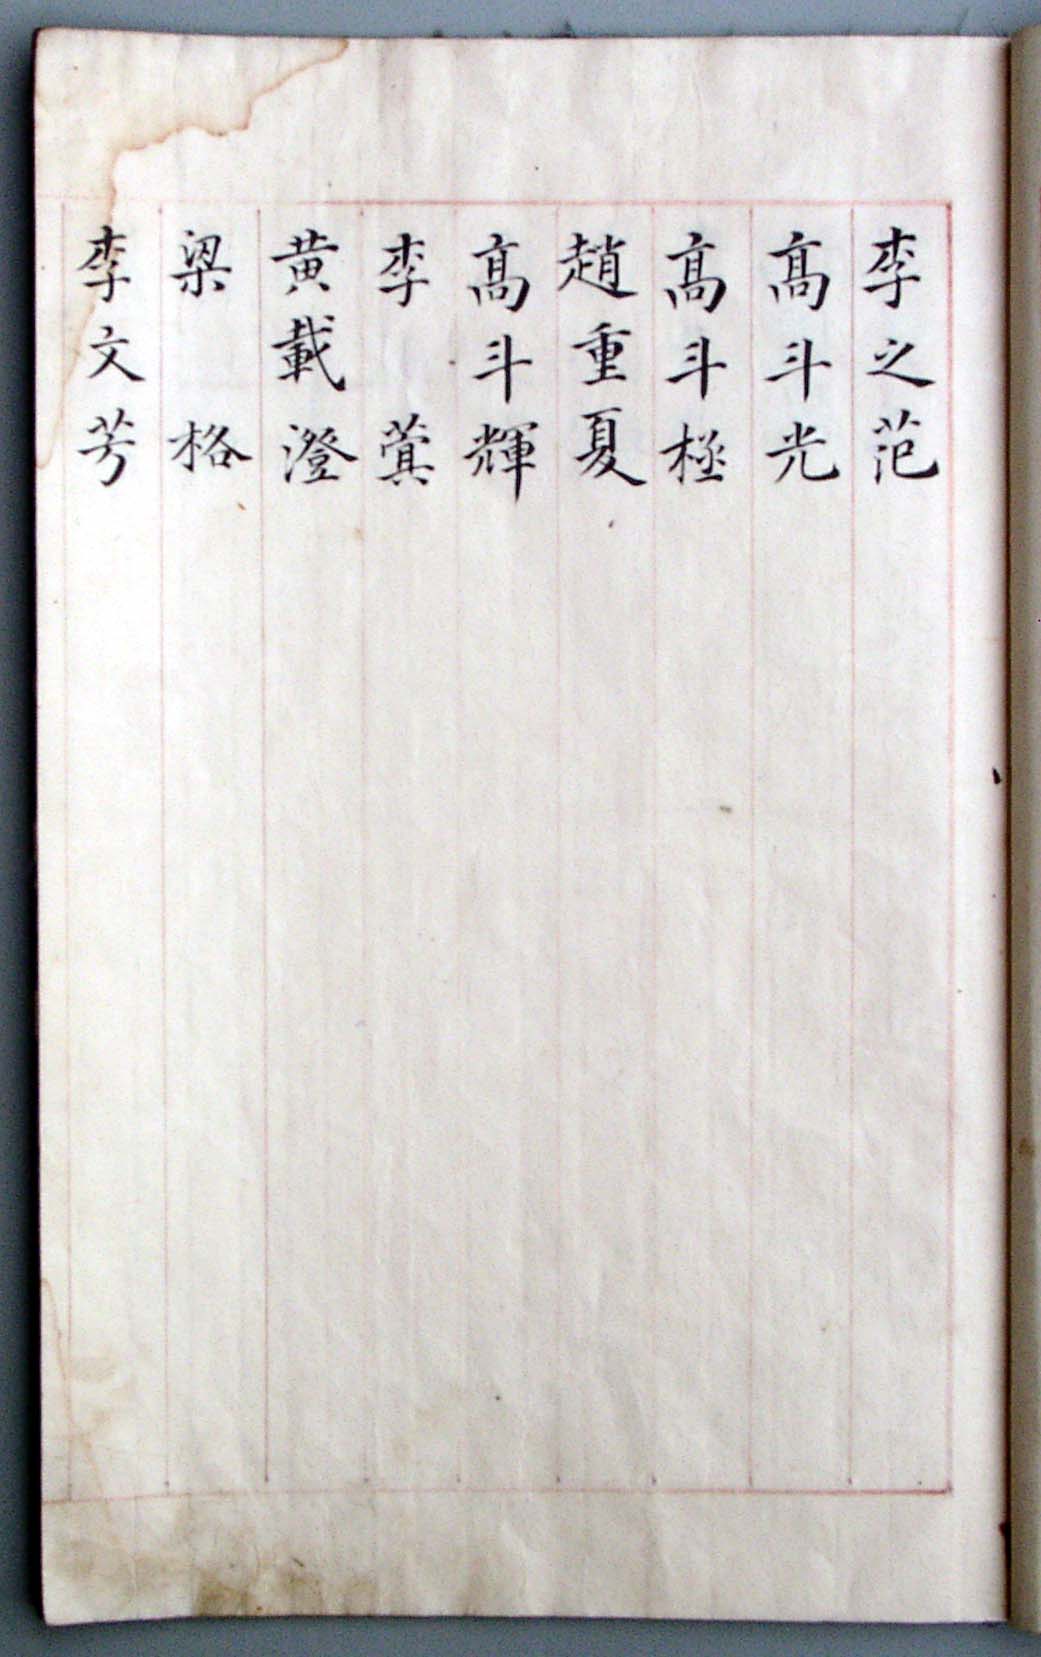 李之范
髙斗光
髙斗極
趙重夏
髙斗輝
李蓂
黃載澄
梁格
李文芳